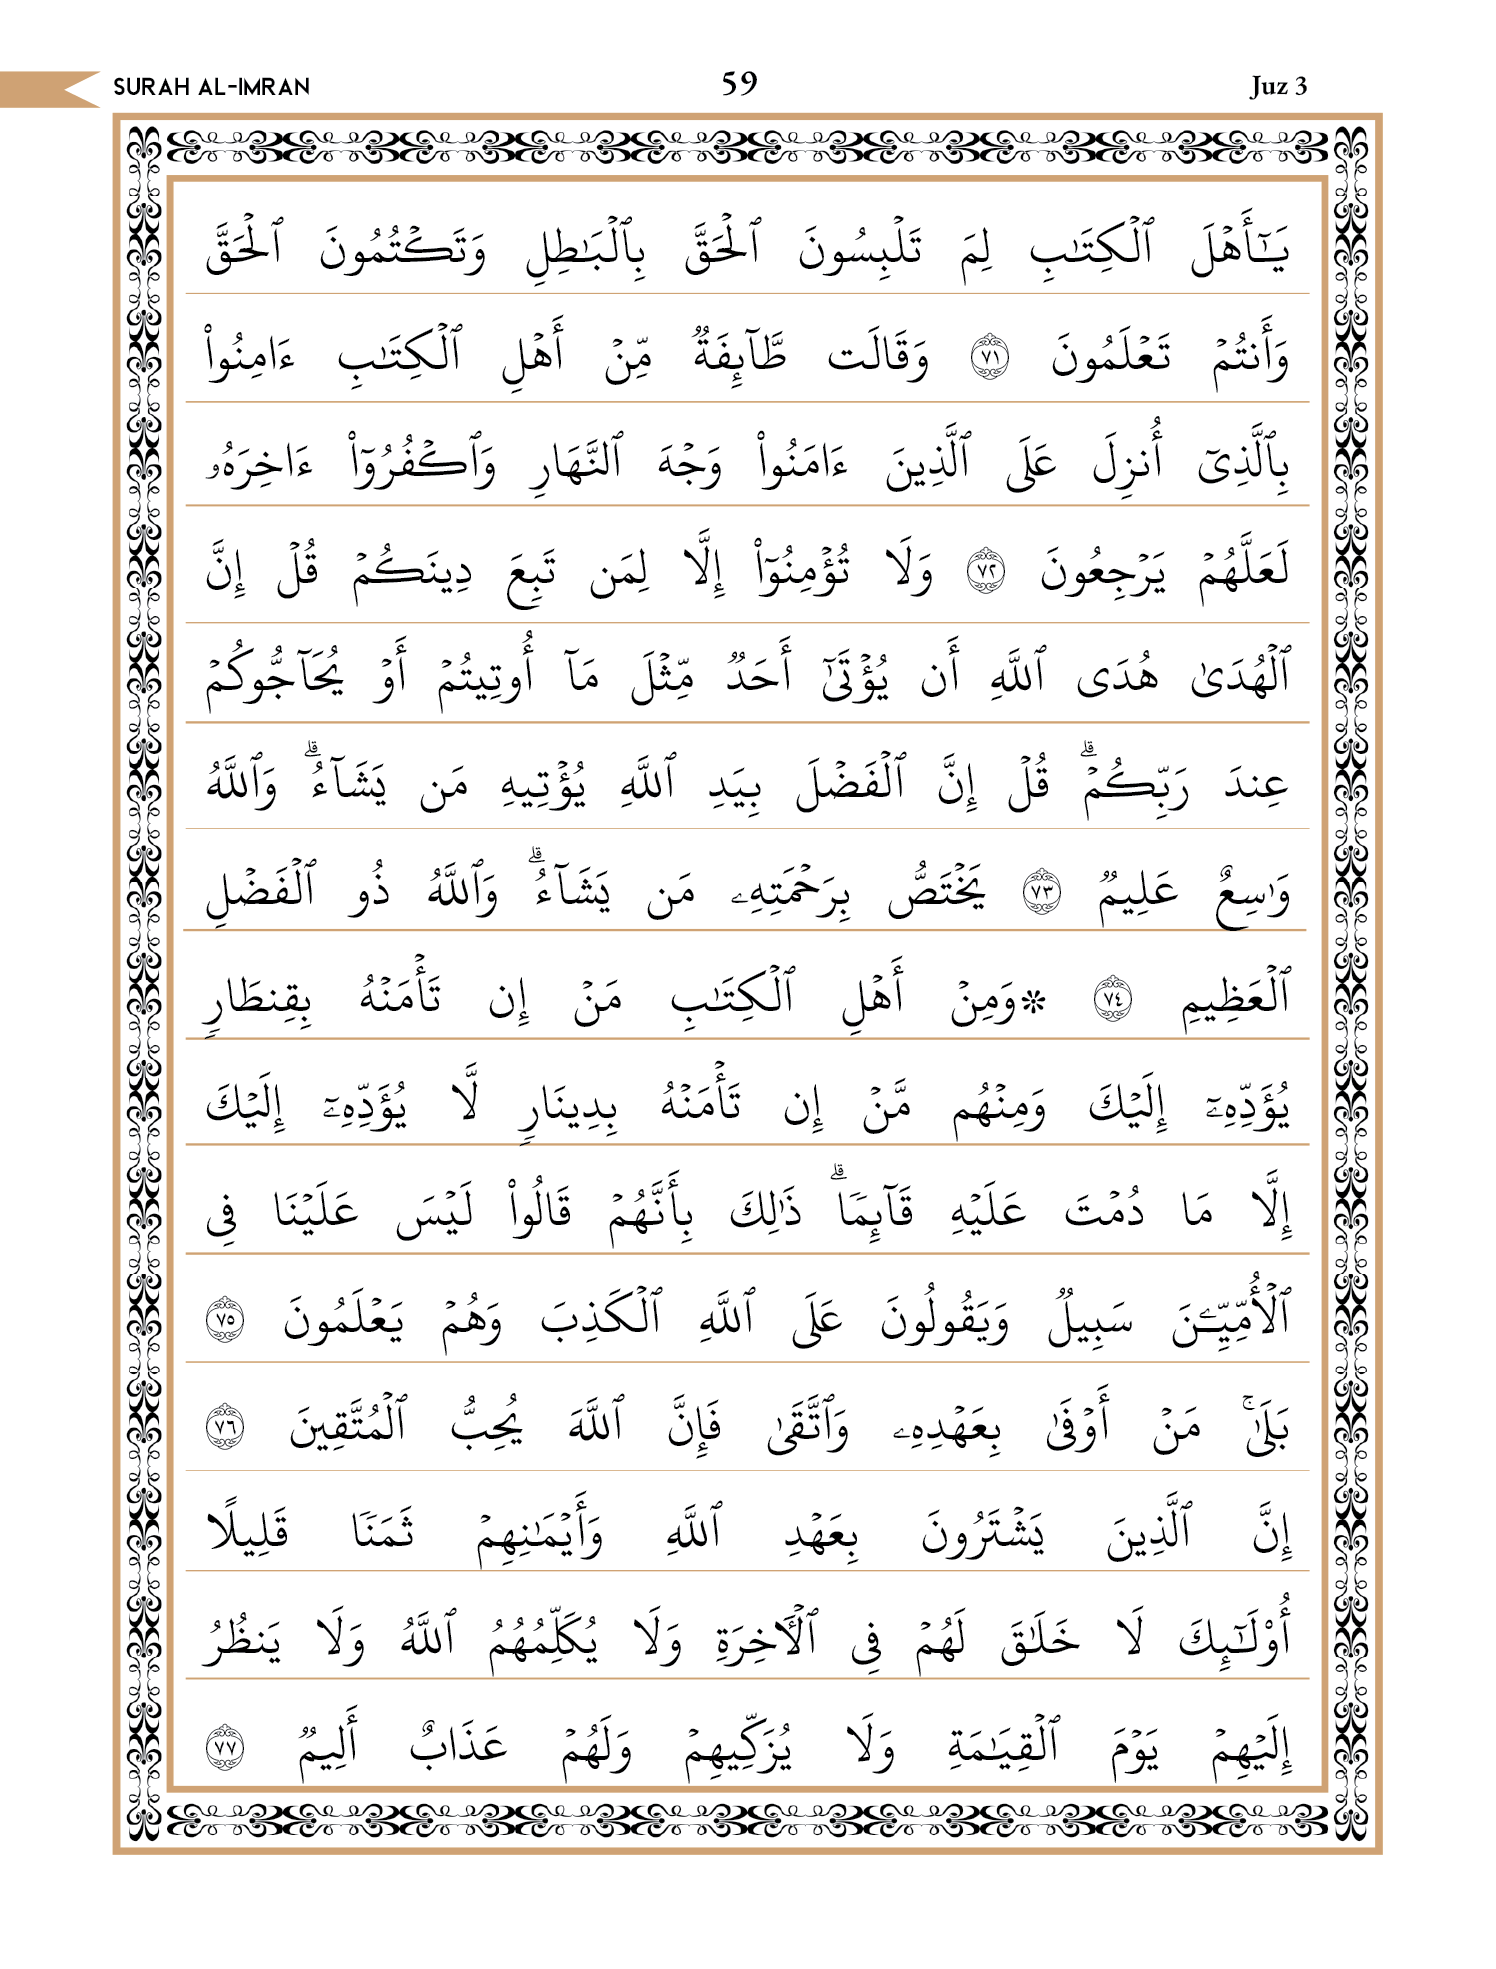 SURAH AL-IMRAN 59 Juz 3
يَـٰٓأَهۡلَ ٱلۡكِتَـٰبِ لِمَ تَلۡبِسُونَ ٱلۡحَقَّ بِٱلۡبَـٰطِلِ وَتَكۡتُمُونَ ٱلۡحَقَّ
وَأَنتُمۡ تَعۡلَمُونَ ٧١ وَقَالَت طَّآئِفَةٞ مِّنۡ أَهۡلِ ٱلۡكِتَـٰبِ ءَامِنُواْ
بِٱلَّذِيٓ أُنزِلَ عَلَى ٱلَّذِينَ ءَامَنُواْ وَجۡهَ ٱلنَّهَارِ وَٱكۡفُرُوٓاْ ءَاخِرَهُۥ
لَعَلَّهُمۡ يَرۡجِعُونَ ٧٢ وَلَا تُؤۡمِنُوٓاْ إِلَّا لِمَن تَبِعَ دِينَكُمۡ قُلۡ إِنَّ
ٱلۡهُدَىٰ هُدَى ٱللَّهِ أَن يُؤۡتَىٰٓ أَحَدٞ مِّثۡلَ مَآ أُوتِيتُمۡ أَوۡ يُحَآجُّوكُمۡ
عِندَ رَبِّكُمۡۗ قُلۡ إِنَّ ٱلۡفَضۡلَ بِيَدِ ٱللَّهِ يُؤۡتِيهِ مَن يَشَآءُۗ وَٱللَّهُ
وَٰسِعٌ عَلِيمٞ ٧٣ يَخۡتَصُّ بِرَحۡمَتِهِۦ مَن يَشَآءُۗ وَٱللَّهُ ذُو ٱلۡفَضۡلِ
ٱلۡعَظِيمِ ٧٤ ۞وَمِنۡ أَهۡلِ ٱلۡكِتَـٰبِ مَنۡ إِن تَأۡمَنۡهُ بِقِنطَارٖ
يُؤَدِّهِۦٓ إِلَيۡكَ وَمِنۡهُم مَّنۡ إِن تَأۡمَنۡهُ بِدِينَارٖ لَّا يُؤَدِّهِۦٓ إِلَيۡكَ
إِلَّا مَا دُمۡتَ عَلَيۡهِ قَآئِمٗاۗ ذَٰلِكَ بِأَنَّهُمۡ قَالُواْ لَيۡسَ عَلَيۡنَا فِي
ٱلۡأُمِّيِّـۧنَ سَبِيلٞ وَيَقُولُونَ عَلَى ٱللَّهِ ٱلۡكَذِبَ وَهُمۡ يَعۡلَمُونَ ٧٥
بَلَىٰۚ مَنۡ أَوۡفَىٰ بِعَهۡدِهِۦ وَٱتَّقَىٰ فَإِنَّ ٱللَّهَ يُحِبُّ ٱلۡمُتَّقِينَ ٧٦
إِنَّ ٱلَّذِينَ يَشۡتَرُونَ بِعَهۡدِ ٱللَّهِ وَأَيۡمَـٰنِهِمۡ ثَمَنٗا قَلِيلًا
أُوْلَـٰٓئِكَ لَا خَلَـٰقَ لَهُمۡ فِي ٱلۡأٓخِرَةِ وَلَا يُكَلِّمُهُمُ ٱللَّهُ وَلَا يَنظُرُ
إِلَيۡهِمۡ يَوۡمَ ٱلۡقِيَـٰمَةِ وَلَا يُزَكِّيهِمۡ وَلَهُمۡ عَذَابٌ أَلِيمٞ ٧٧